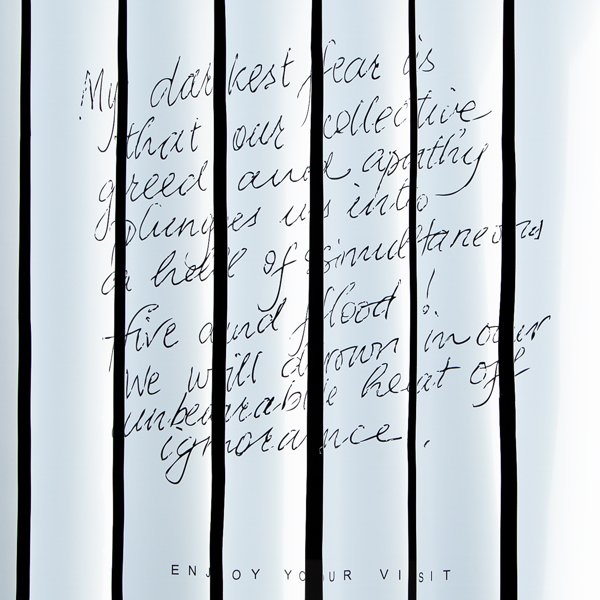 My darkest fear is
that our collective
greed and apathy
plunges us into
a hell of simultaneous
fire and flood!
We will drown in our
unbearable heat of
ignorance.
ENJOY YOUR VISIT